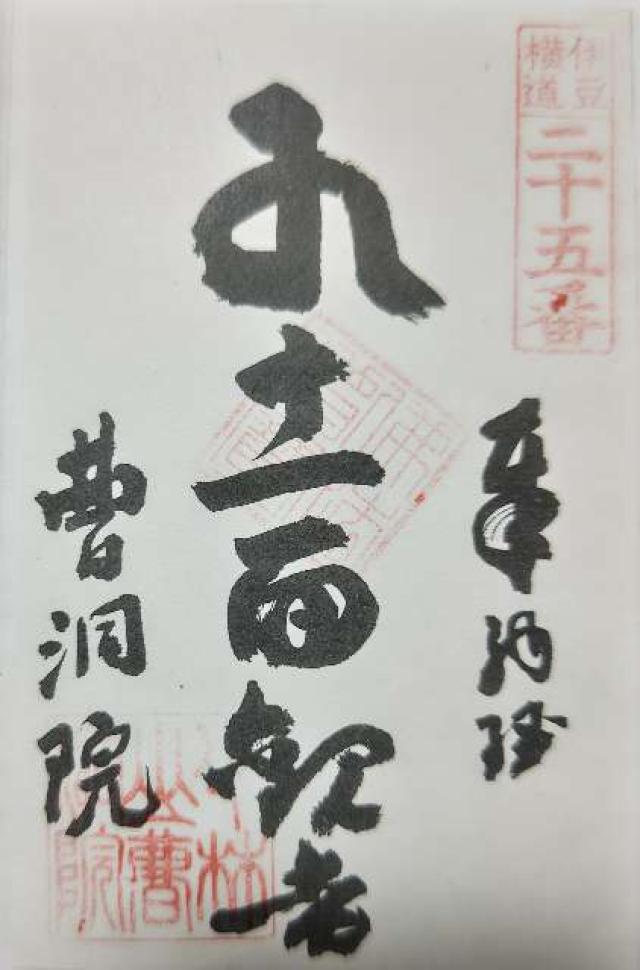 伊豆
横道
二十五番
奉納経
十一面観音
曹洞院